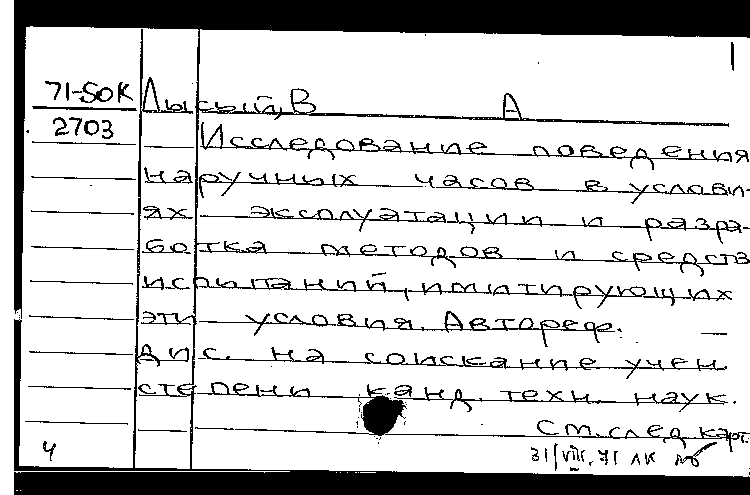 71-50к Лысый, В А
2703 Исследование поведения
наручных часов в услови-
ях эксплуатации и разра-
ботка методов и средств
испытаний, имитирующих
эти условия. Автореф. —
дис. на соискание учен
степени канд. техн. наук.
См. след. карт.
4 31/VIII.71 ЛК